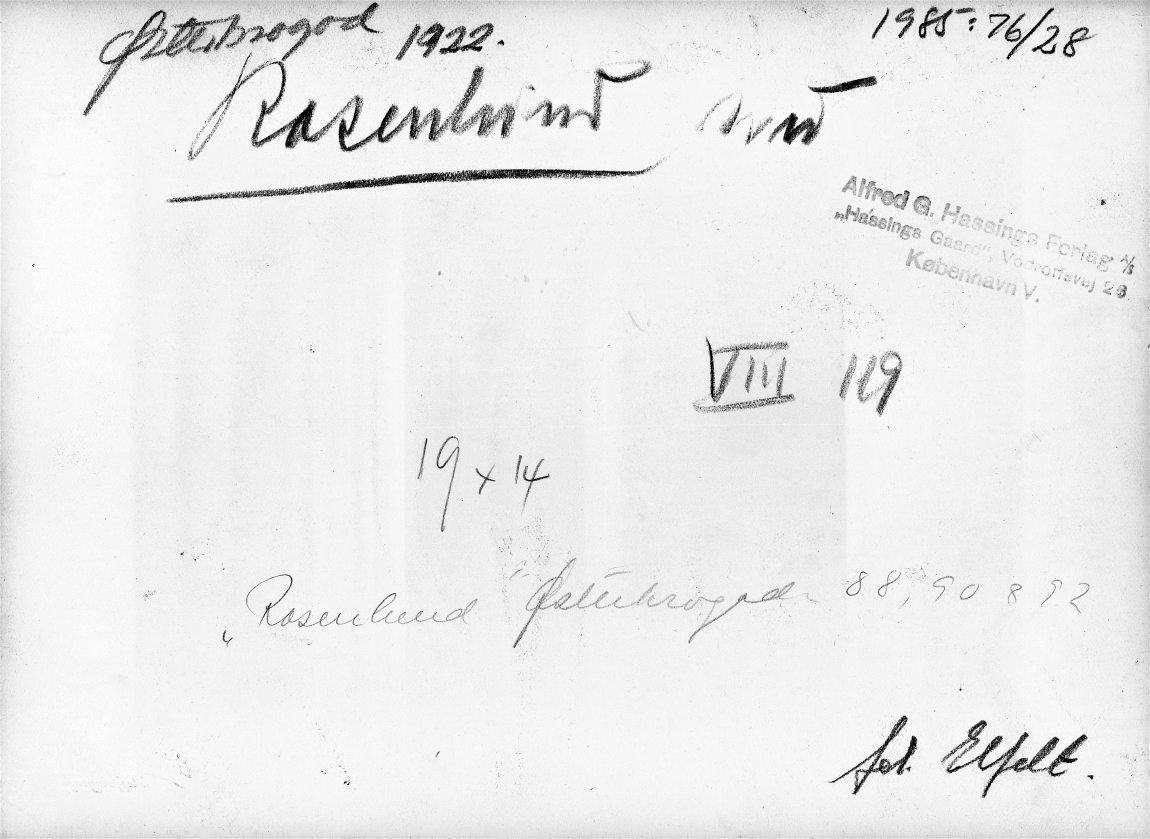 Østerbrogad 1922.
1985:76/28
Rosenlund
Alfred G. Hassings Forlag A/S
„Hassings Gaard", Vodroffsvej 26
København V.
VIII 119
19 x 14
„Rosenlund" Østerbrogade 88, 90 & 92
fot. Elfelt.